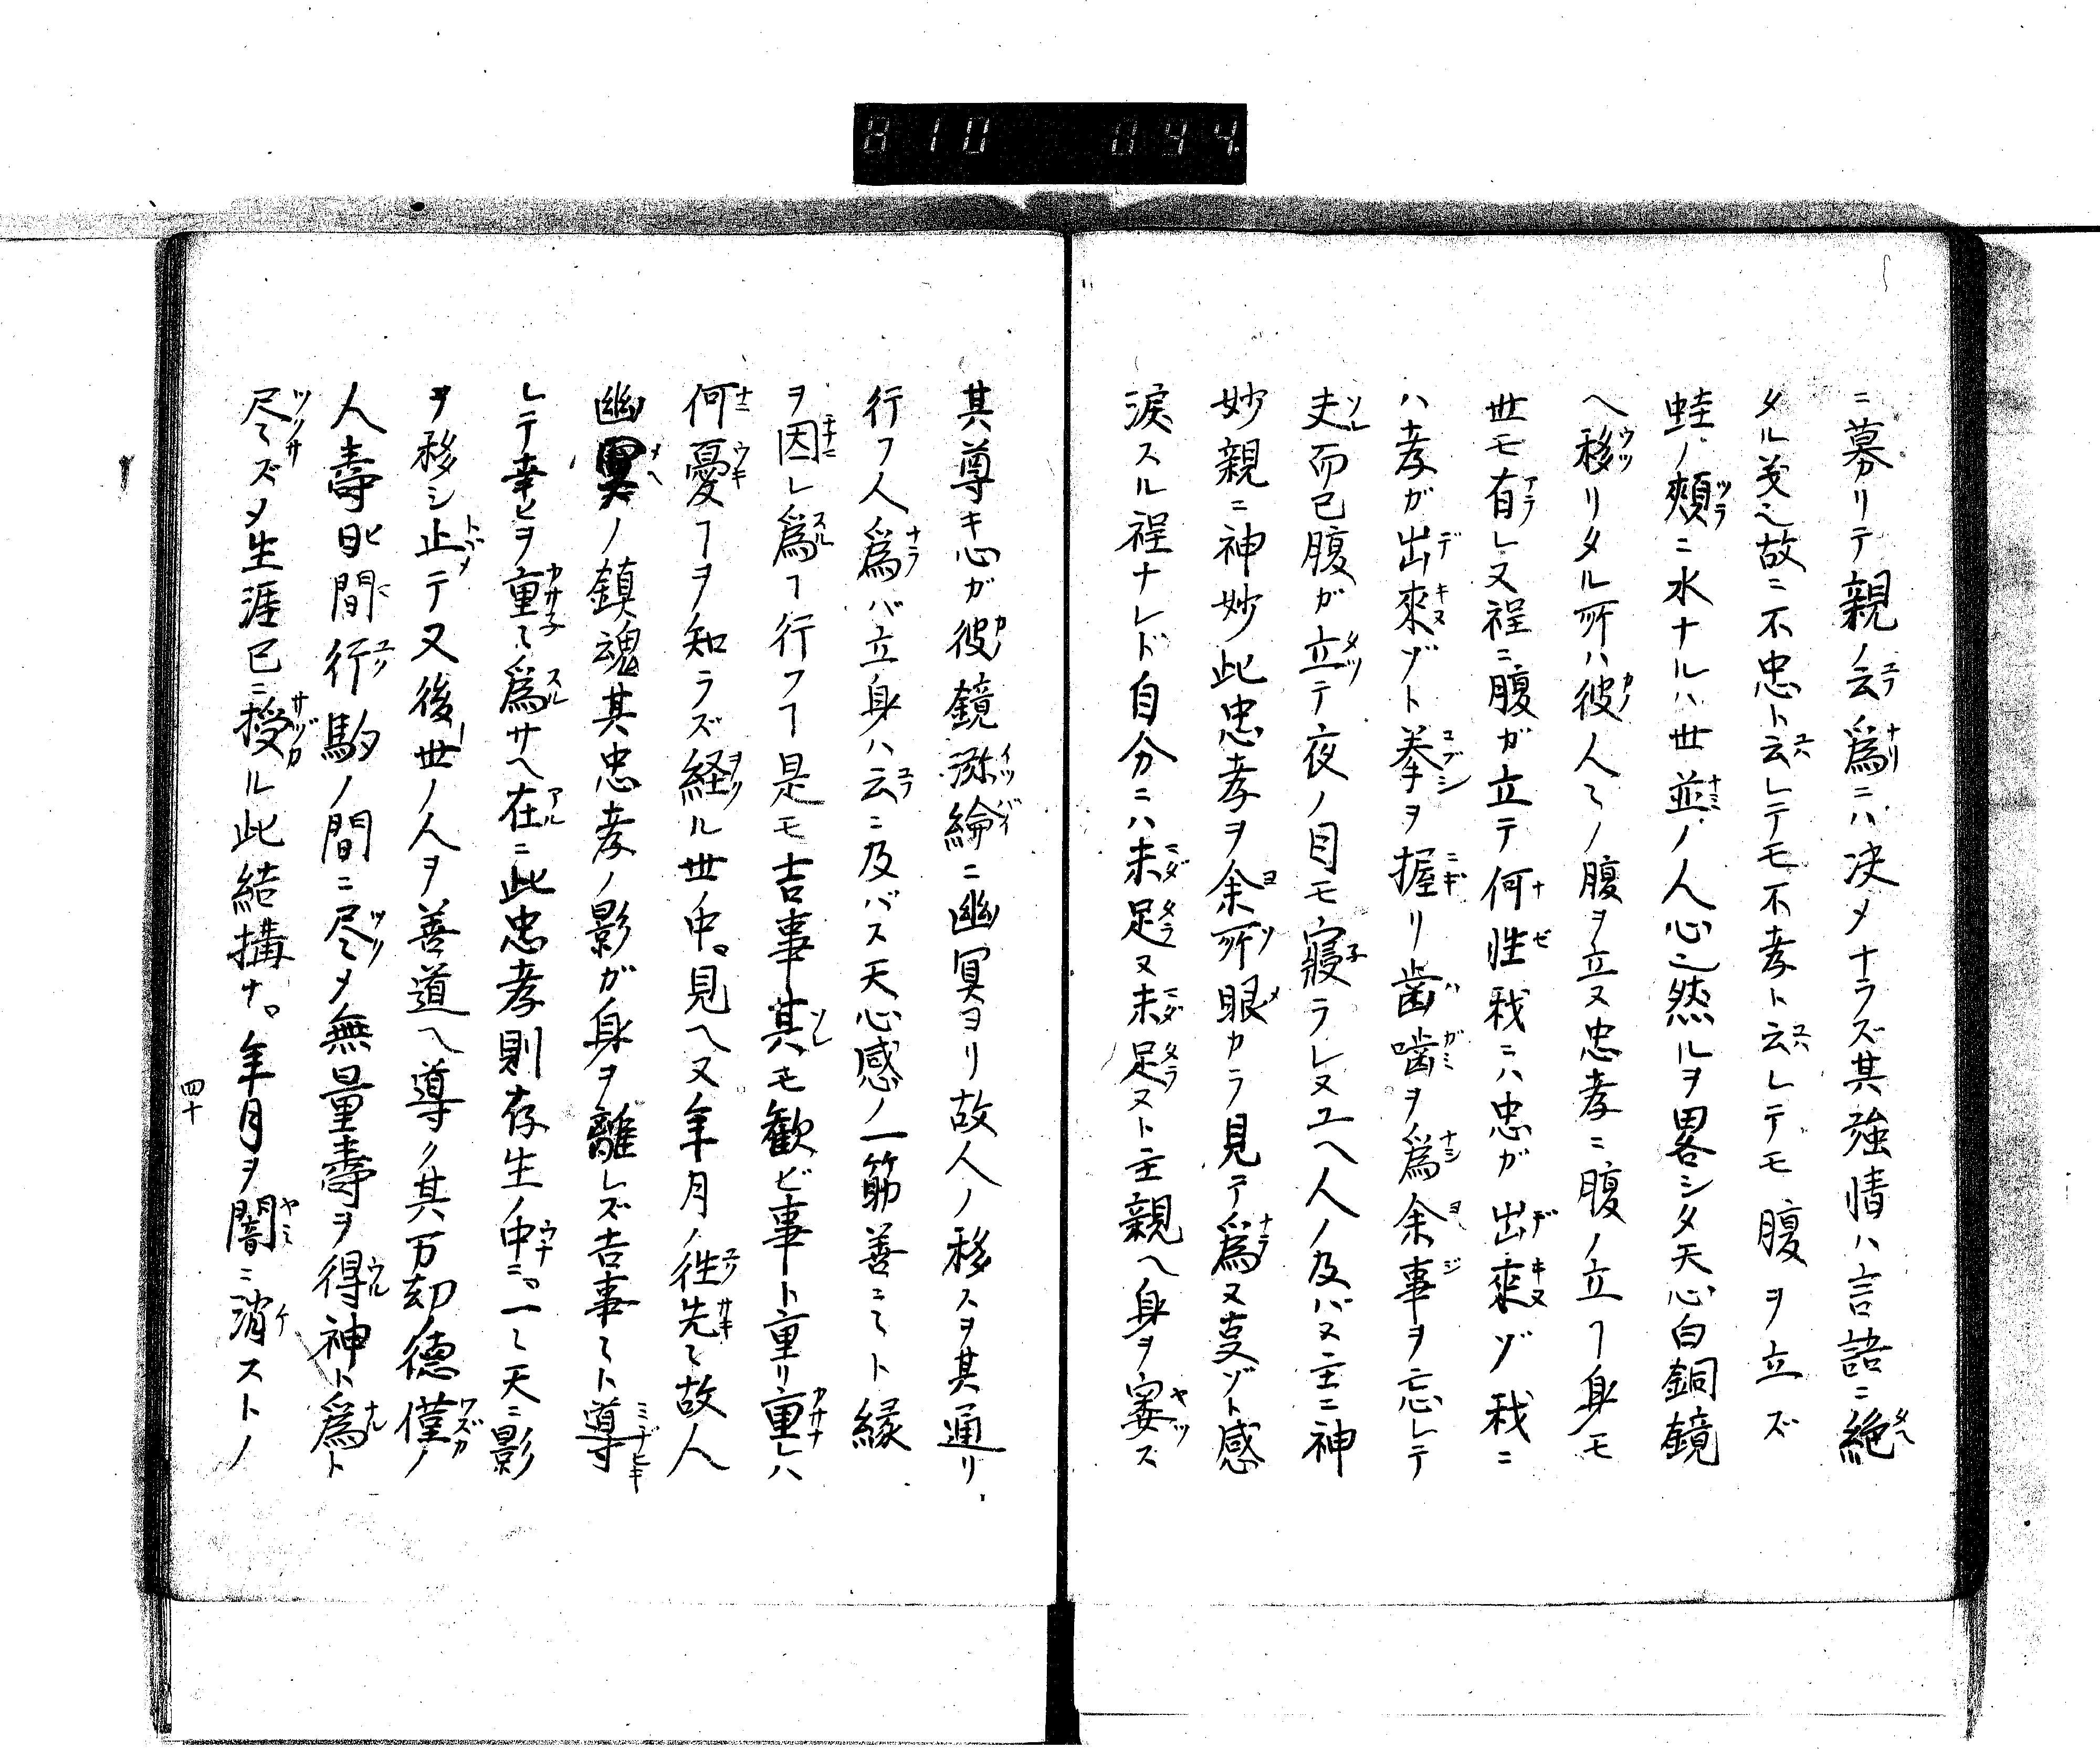 810 044.
ニ募リテ親ノ云爲ニハ决メナラズ其強情ハ言語ニ絶
タル義也故ニ不忠ト云レテモ不孝ト云レテモ腹ヲ立ズ
蛙ノ頬ニ水ナルハ世並ノ人心也然ルヲ畧シタ天心白銅鏡
ヘ移リタル所ハ彼人々ノ腹ヲ立ヌ忠孝ニ腹ノ立ヿ身モ
世モ有レヌ程ニ腹ガ立テ何性我ニハ忠ガ出來ゾ我ニ
ハ孝ガ出來ゾト拳ヲ握リ歯噛ヲ爲余事ヲ忘レテ
夫而已腹ガ立テ夜ノ目モ寢ラレヌユヘ人ノ及バヌ主ニ神
妙親ニ神妙此忠孝ヲ余所眼カラ見テ爲ヌ㕝ゾト感
涙スル程ナレド自分ニハ未足ヌ未足ヌト主親ヘ身ヲ窶ス
其尊キ心ガ彼鏡滁綸ニ幽冥ヨリ故人ノ移スヲ其通リ
行フ人爲バ立身ハ云ニ及バス天心感ノ一筋善ニ々ト縁
ヲ因レ爲ヿ行フヿ是モ吉事其モ歓ビ事ト重リ重レハ
何憂ヿヲ知ラズ経ル世ノ中。見ヘヌ年月ノ徃先々故人
幽冥ノ鎮魂其忠孝ノ影ガ身ヲ離レズ吉事々ト導
レテ幸ヒヲ重々爲サヘ在ニ此忠孝則存生ノ中ニ。一々天ニ影
ヲ移シ止テ又後世ノ人ヲ善道ヘ導ク其万刧徳僅ノ
人壽䏦間行駒ノ間ニ尽々メ無量壽ヲ得神ト爲ト
尽々ズメ生涯已ニ授ル此結搆ナ。年月ヲ闇ニ消ストノ
四十